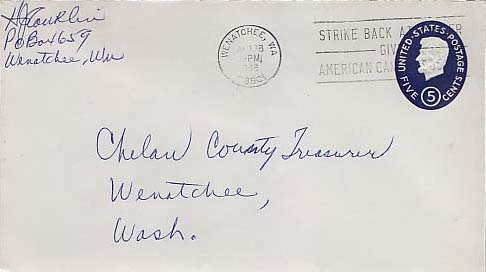 H Conklin
PO Box 659
Wenatchee, Wn
WENATCHEE, WA
PM
98801
STRIKE BACK AT
GIVE
AMERICAN CANCER
UNITED·STATES·POSTAGE
5
FIVE CENTS
Chelan County Treasurer
Wenatchee,
Wash.